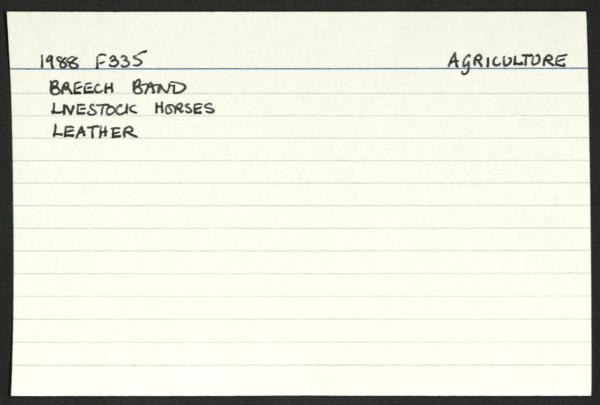 1988 F335 AGRICULTURE
BREECH BAND
LIVESTOCK HORSES
LEATHER